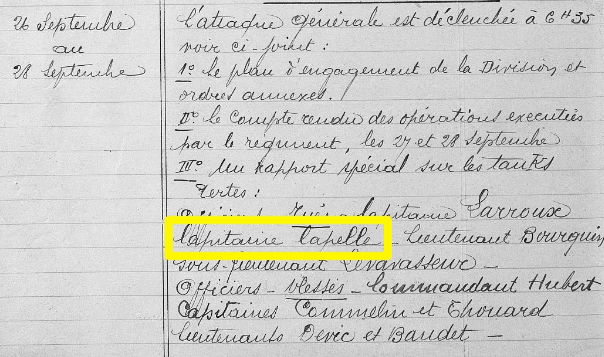 26 Septembre
au
28 Septembre
L'attaque générale est déclenchée à 6H35
voir ci-joint :
1o Le plan d'engagement de la Division et
ordres annexes.
IIo Le Compte rendu des opérations executées
par le régiment, les 27 et 28 Septembre
IIIo Un rapport spécial sur les tanks
Pertes :
Officiers - Tués - Capitaine Larroux
Capitaine Capelle - Lieutenant Bourguin
Sous-Lieutenant Levavasseur -
Officiers - blessés - Commandant Hubert
Capitaines Commelin et Thouard
Lieutenants Devic et Baudet -